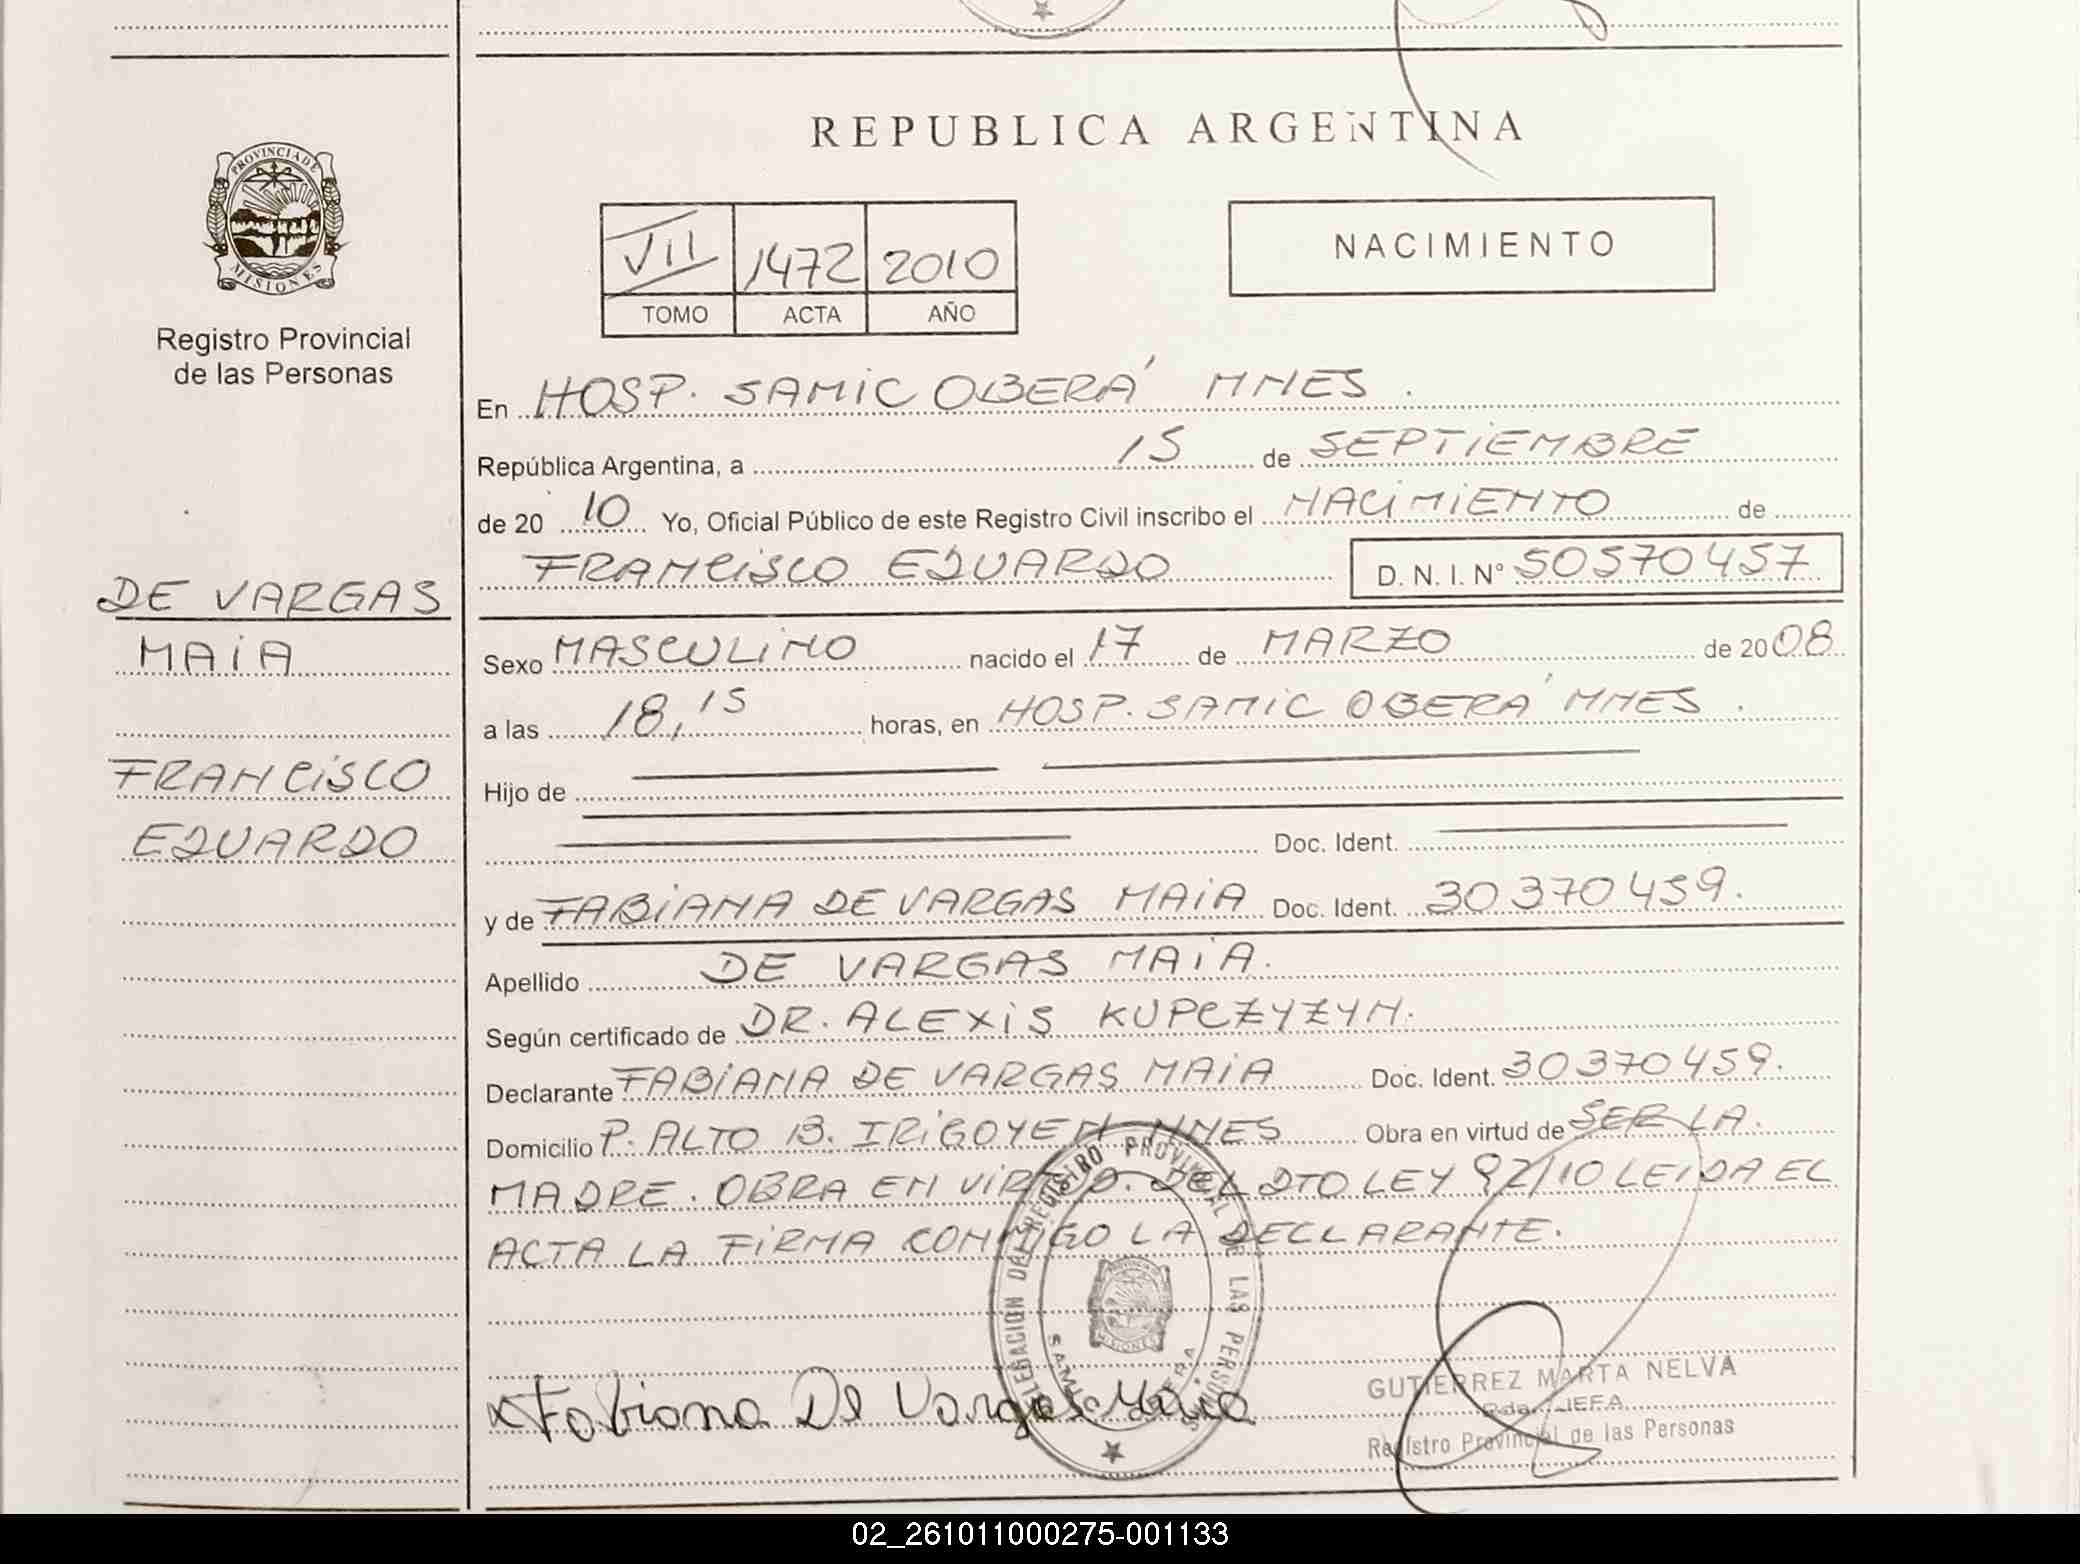 REPUBLICA ARGENTINA
PROVINCIA DE
MISIONES
Registro Provincial
de las Personas
VII 1472 2010
TOMO ACTA AÑO
NACIMIENTO
En HOSP. SAMIC OBERÁ MNES.
República Argentina, a 15 de SEPTIEMBRE
de 20 10 Yo, Oficial Público de este Registro Civil inscribo el NACIMIENTO de
FRANCISCO EDUARDO D. N. I. N° 50570457
DE VARGAS
MAIA
FRANCISCO
EDUARDO
Sexo MASCULINO nacido el 17 de MARZO de 2008
a las 18,15 horas, en HOSP. SAMIC OBERÁ MNES.
Hijo de
Doc. Ident.
y de FABIANA DE VARGAS MAIA Doc. Ident. 30370459.
Apellido DE VARGAS MAIA.
Según certificado de DR. ALEXIS KUPCZYZYN.
Declarante FABIANA DE VARGAS MAIA Doc. Ident. 30370459.
Domicilio P. ALTO B. IRIGOYEN MNES Obra en virtud de SER LA
MADRE. OBRA EN VIRTUD. DEL DTO LEY 92/10 LEIDA EL
ACTA LA FIRMA CONMIGO LA DECLARANTE.
DELEGACION DEL REGISTRO PROVINCIAL DE LAS PERSONAS
SAMIC OBERA
MISIONES
x Fabiana De Vargas Maia
GUTIERREZ MARTA NELVA
JEFA
Registro Provincial de las Personas
02_261011000275-001133